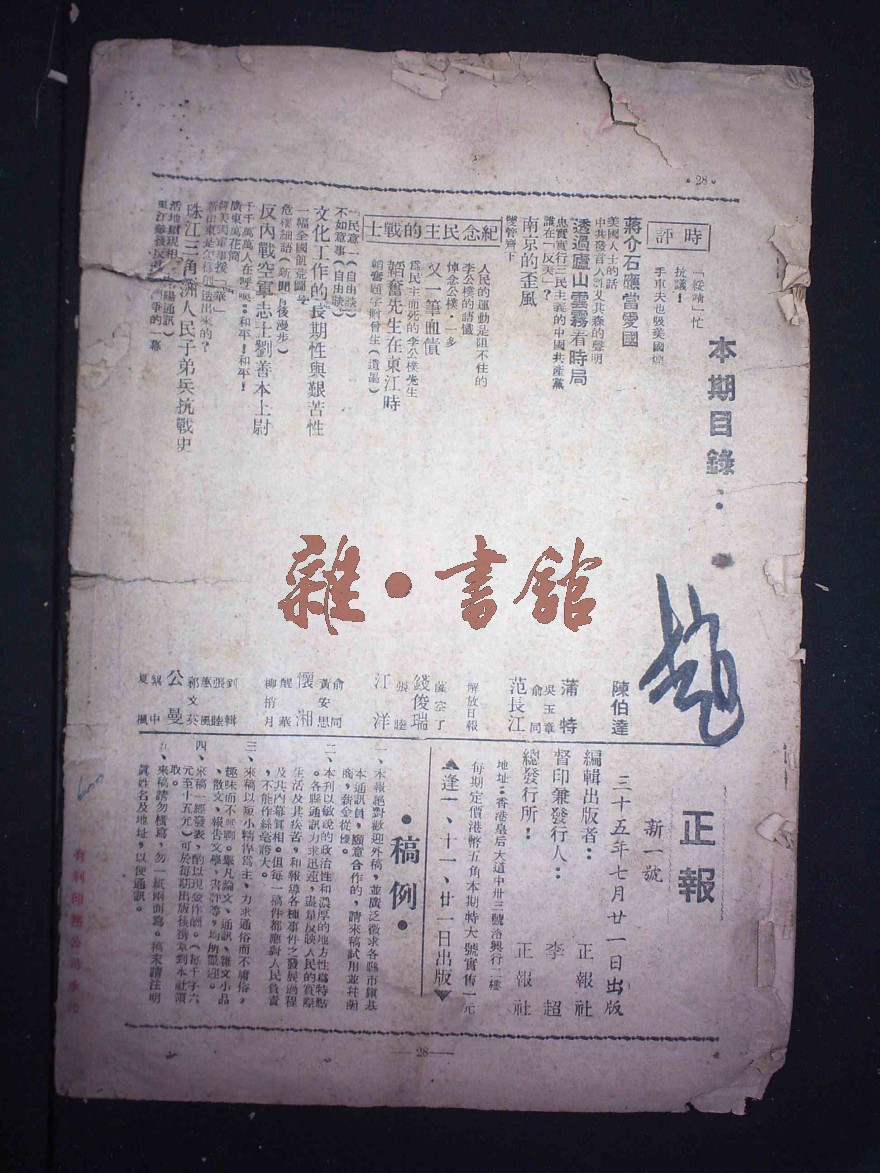 ·28·
本期目錄：
時評
「綏靖」忙
抗議！
手車夫也吸美國煙
美國人士的話
蔣介石應當愛國
中共發言人
透過廬山雲霧看時局
忠實實行三民主義的中國共產黨
誰在「反美」？
南京的歪風
雙管齊下
紀念民主的戰士
人民的運動是阻不住的
李公樸的語儀
悼念公樸·一多
又一筆血債
爲民主而死的李公樸先生
韜奮先生在東江時
韜奮題字贈曾生（遺墨）
「民意」（自由談）
不如意事（自由談）
文化工作的長期性與艱苦性
一幅全國飢荒圖
危樓細語（新聞背後漫步）
反內戰空軍志士劉善本上尉
千千萬萬人在呼喚：和平！和平！
廣東萬花筒
珠江三角洲人民子弟兵抗戰史
陳伯達
蒲特
吳玉章
俞同
范長江
解放日報
錢俊瑞
張陸
江洋
俞同
黃安思
懷湘
醒華
柳梢月
劉輯
張睦
蕙風
郭文英
公曼
夏楓
雜·書館
正報
新一號
三十五年七月廿一日出版
編輯出版者：正報社
督印兼發行人：李超
總發行所：正報社
地址：香港皇后大道中卅三號洛興行二樓
每期定價港幣五角本期特大號實售一元
▲逢一、十一、廿一日出版▼
·稿例·
一、本報絕對歡迎外稿，並廣泛徵求各縣市鎮基
本通訊員，願意合作的，請來稿試用並幷函
商，薪金從優。
二、本刊以敏銳的政治性和濃厚的地方性爲特點
。各縣通訊力求迅速，盡量反映人民的實際
生活及其疾苦，和報導各種事件之發展過程
及其內幕實相。但每一稿件都應對人民負責
，不能作絲毫誇大。
三、來稿以短小精悍爲主，力求通俗而不庸俗，
趣味而不無聊。舉凡論文、通訊、雜文小品
、散文、報告文學、書評等，均所歡迎。
四、來稿一經發表，酌以現金作酬。（每千字六
元至十五元）可於每期出版後携章到本社領
取。
五、來稿請勿橫寫，勿一紙兩面寫。稿末請注明
眞姓名及地址，以便通訊。
600
—28—